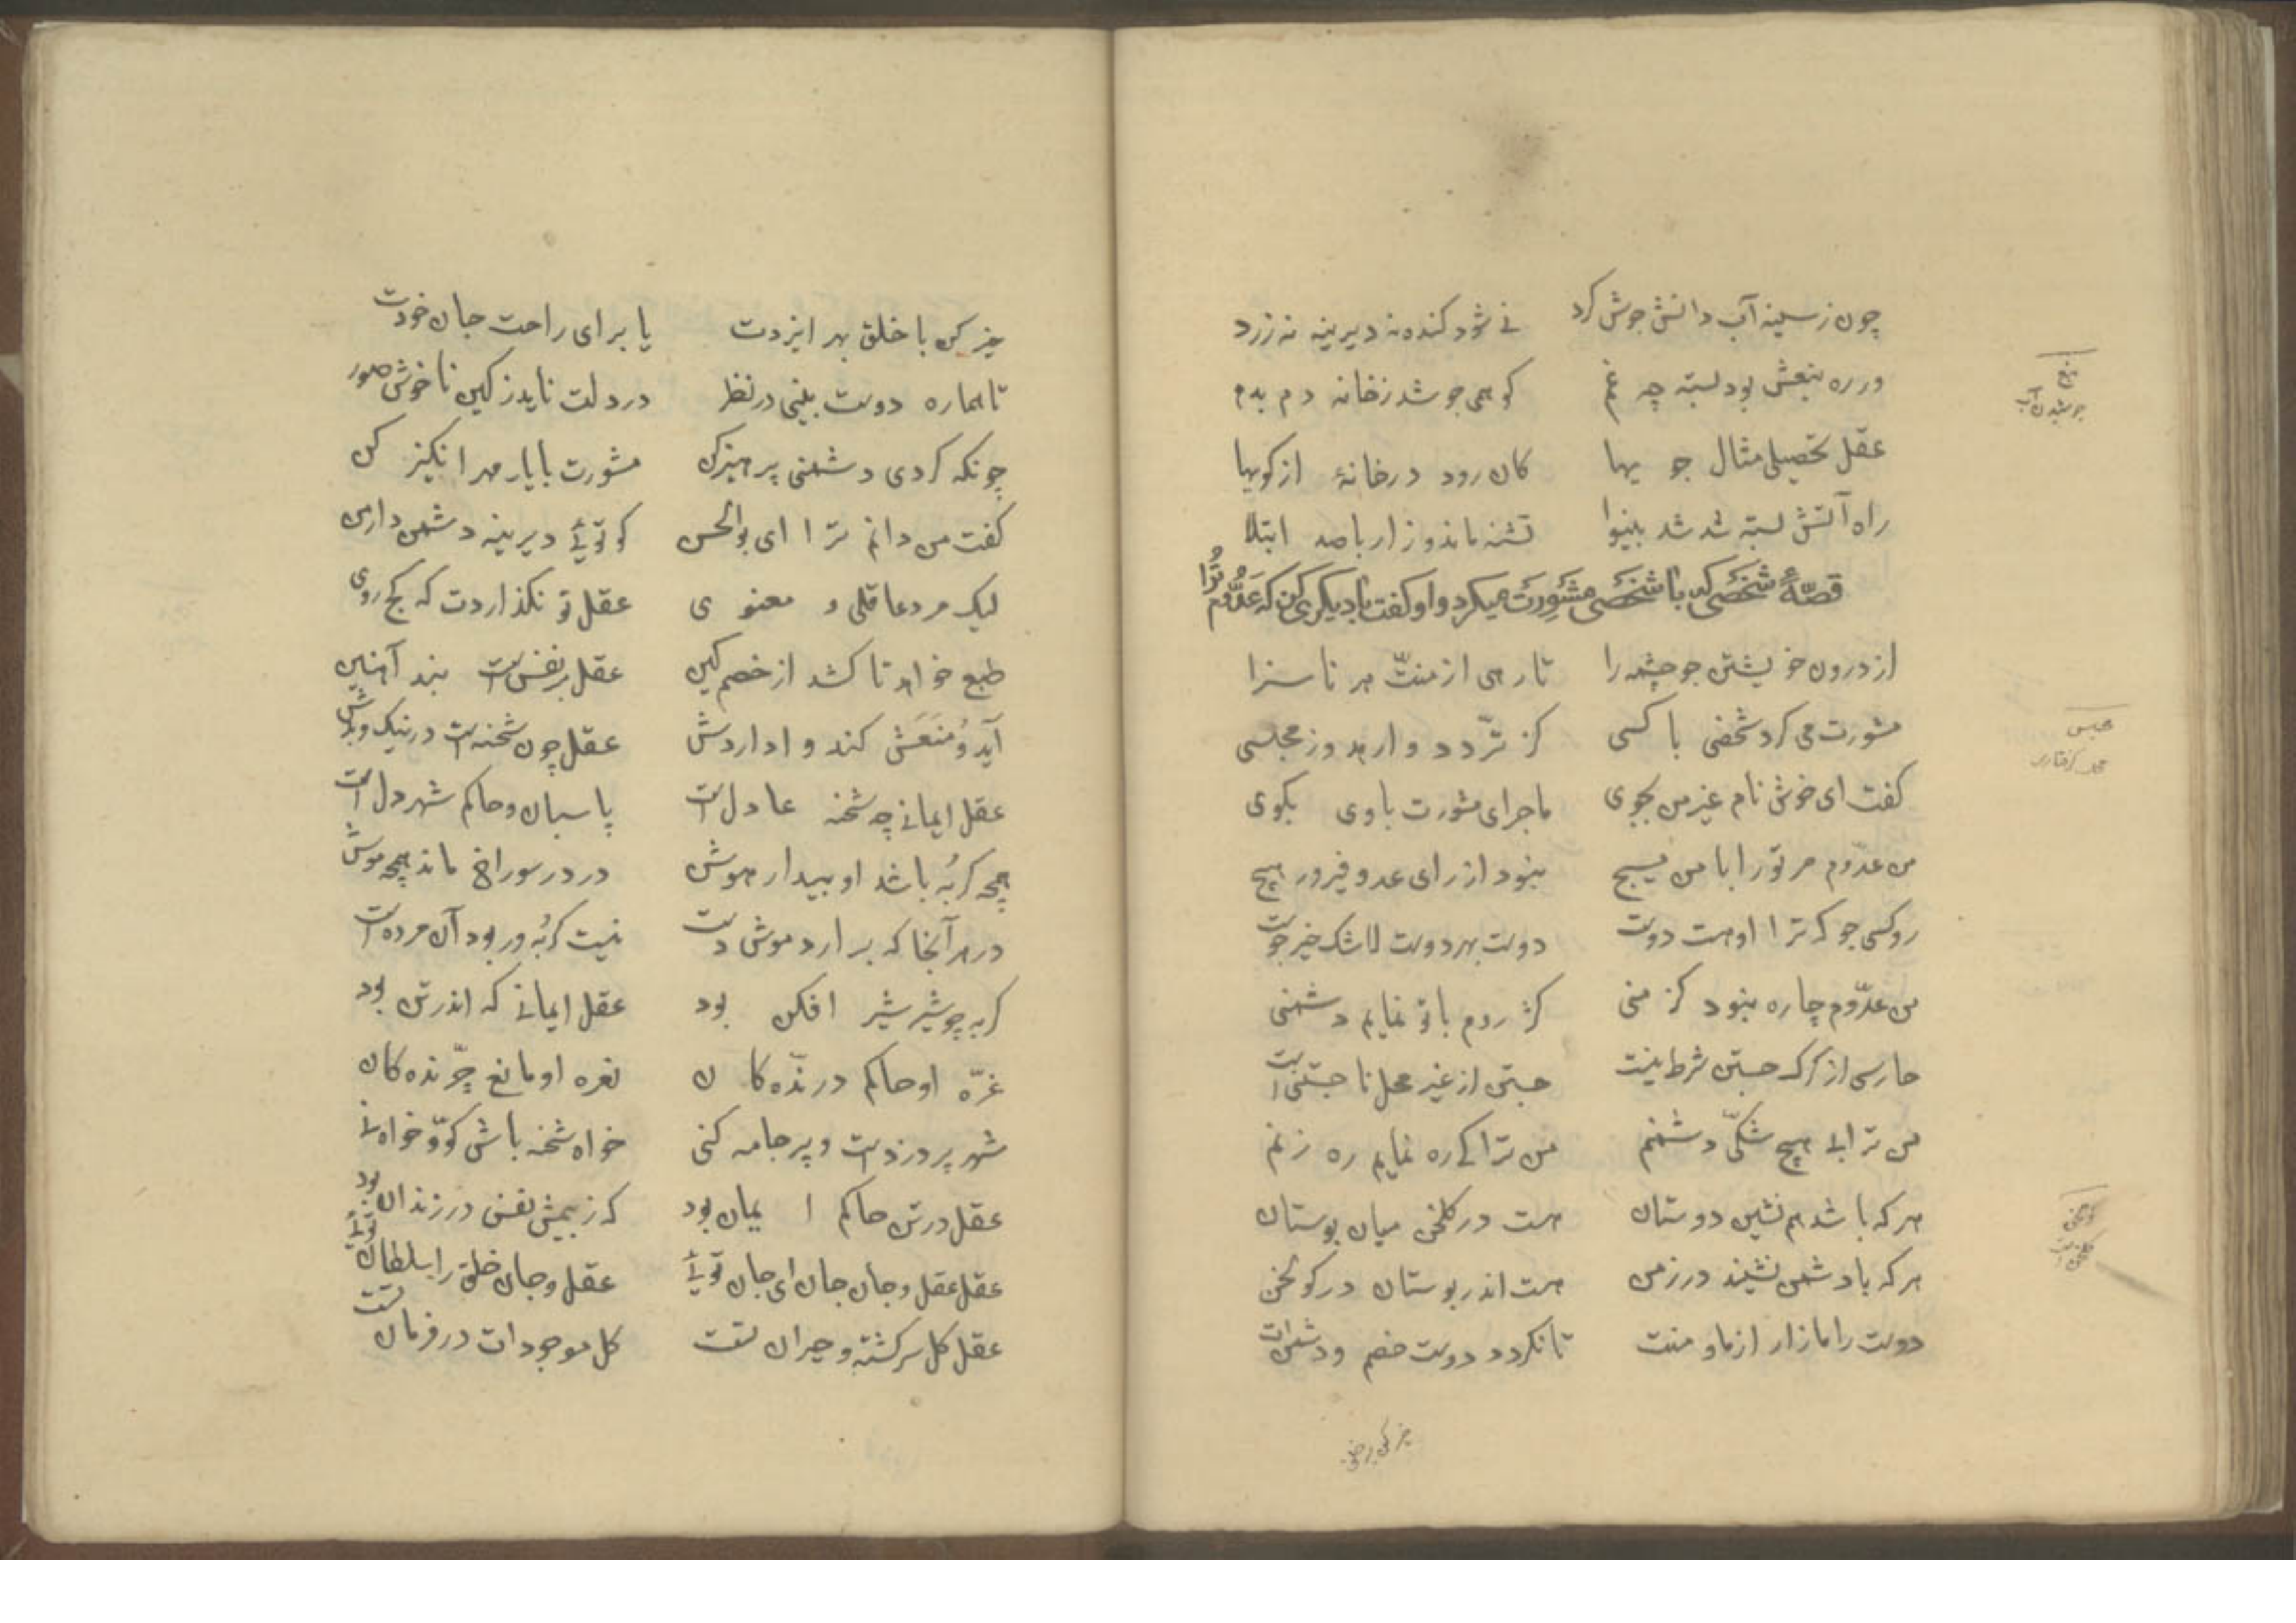 چون ز سینه آب دانش جوش کرد نے شود کنده نه دیرینه نه زرد
ور ره نبعش بود بسته چه غم کو همی جوشد ز خانه دم بدم
عقل تحصیلی مثال جویها کان رود در خانهٔ از کویها
راه آتش بسته شد شد بینوا تشنه ماند و زار با صد ابتلا
قصّهٔ شخصی که با شخصی مشورت میکرد و او کفت با دیکری کن که عدوّم ترا
از درون خویشتن جو چشمه را تا رهی از منتّ هر نا سزا
مشورت می کرد شخصی با کسی کز تردّد وا رهد وز محبسی
کفت ای خوش نام غیر من بجوی ماجرای مشورت با وی بکوی
من عدوّم مر تورا با من مپیچ نبود از رای عدو فیروز هیچ
رو کسی جو که ترا او هست دوست دوست بهر دوست لاشک خیر جوست
من عدوّم چاره نبود کز منی کژ روم با تو نمایم دشمنی
حارسی از کرک جستن شرط نیست جستن از غیر محل نا جستنی است
من ترا بے هیچ شکّی دشمنم من ترا کے ره نمایم ره زنم
هر که باشد هم نشین دوستان هست در کلخن میان بوستان
هر که با دشمن نشیند در زمن هست اندر بوستان در کولخن
دوست را مازار از ما و منت تا نکردد دوست خصم و دشمنت
نبع
جوشیدن آب
محبس
کولخن
خیر کن با خلق بهر ایزدت یا برای راحت جان خودت
تا هماره دوست بینی در نظر در دلت ناید ز کین ناخوش صور
چونکه کردی دشمنی پرهیز کن مشورت با یار مهر انکیز کن
کفت من دانم ترا ای بوالحسن کو توئے دیرینه دشمن دار من
لیک مرد عاقلی و معنوی عقل تو نکذاردت که کج روی
طبع خواهد تا کشد از خصم کین عقل بر نفس است بند آهنین
آید و منعش کند وا داردش عقل چون شحنه است در نیک و بدش
عقل ایمانے چو شحنه عادل است پاسبان و حاکم شهر دل است
همچو کربه باشد او بیدار هوش دزد در سوراخ ماند همچو موش
در هر آنجا که بر آرد موش دست نیست کربه ور بود آن مرده است
کربه چو شیر شیر افکن بود عقل ایمانے که اندر تن بود
غرّه او حاکم درندّه کان نعره او مانع چرّنده کان
شهر پر دزد است و پر جامه کنی خواه شحنه باش کو و خواه نے
عقل در تن حاکم ایمان بود که ز بیمش نفس در زندان بود
عقل عقل و جان جان ای جان توئے عقل و جان خلق را سلطان توئے
عقل کل سرکشته و حیران تست کل موجودات در فرمان تست